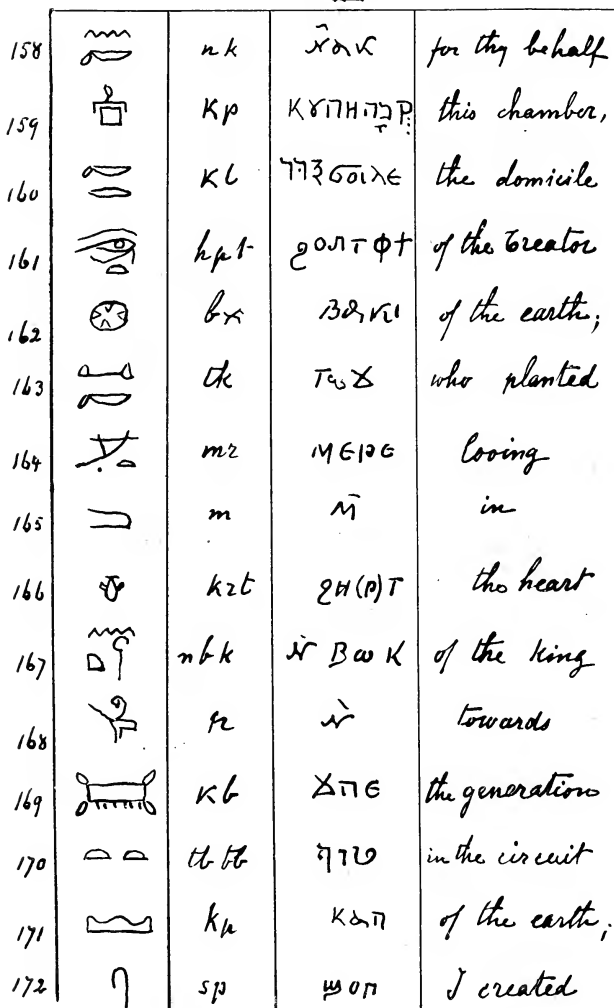 158 nk ⲛ̄ⲁⲕ for thy behalf
159 Kp ⲕⲩⲡⲏ קבה this chamber,
160 Kl ϭⲟⲓⲗⲉ the domicile
161 hpt ϩⲟⲡⲧ ⲫϯ of the Creator
162 ⲃⲁⲕⲓ of the earth;
163 tk ⲧⲱϫ who planted
164 mr ⲙⲉⲣⲉ loving
165 m ⲙ̄ in
166 krt ϩⲏ(ⲣ)ⲧ the heart
167 nbk ⲛ̀ ⲃⲱⲕ of the king
168 n ⲛ̀ towards
169 Kb ϫⲡⲉ the generations
170 tb tb in the circuit
171 kp ⲕⲁⲡ of the earth;
172 sp ϣⲟⲡ I created